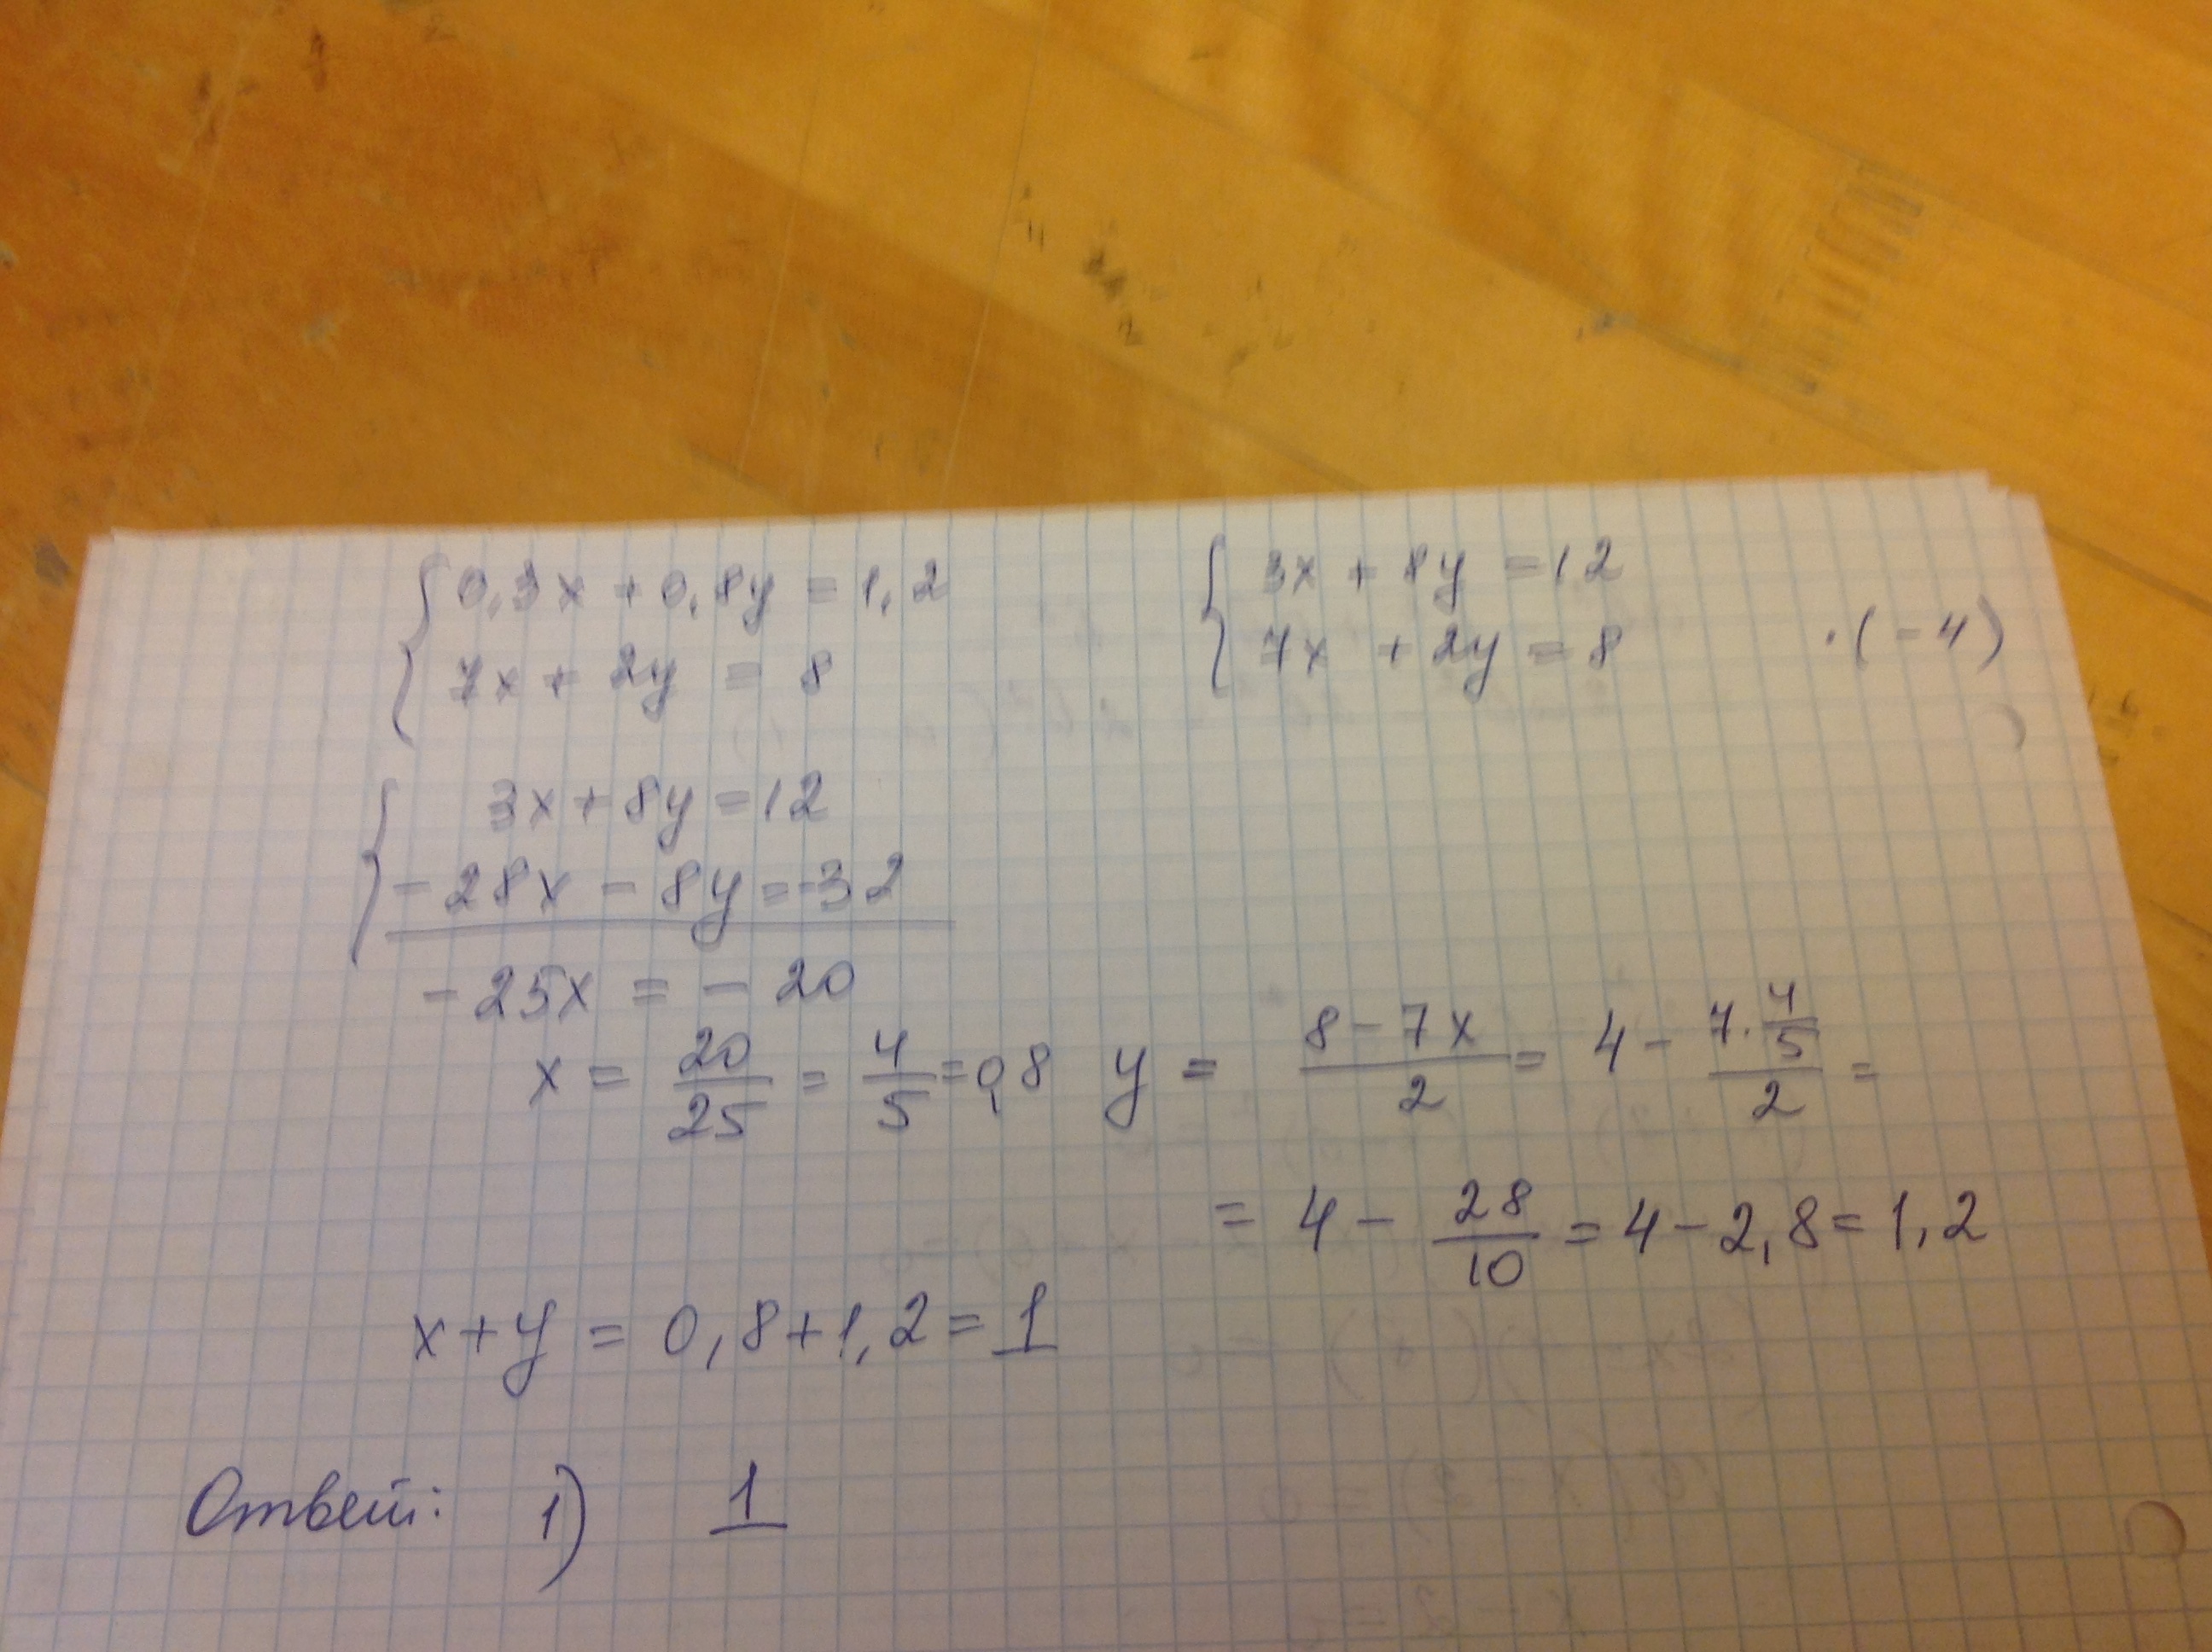 { 0,3x + 0,8y = 1,2    { 3x + 8y = 12
7x + 2y = 8    7x + 2y = 8    ·(-4)
{ 3x + 8y = 12
-28x - 8y = -32
-25x = - 20
x = 20/25 = 4/5 = 0,8    y = (8 - 7x)/2 = 4 - (7·4/5)/2 =
= 4 - 28/10 = 4 - 2,8 = 1,2
x + y = 0,8 + 1,2 = 1
Ответ: 1) 1